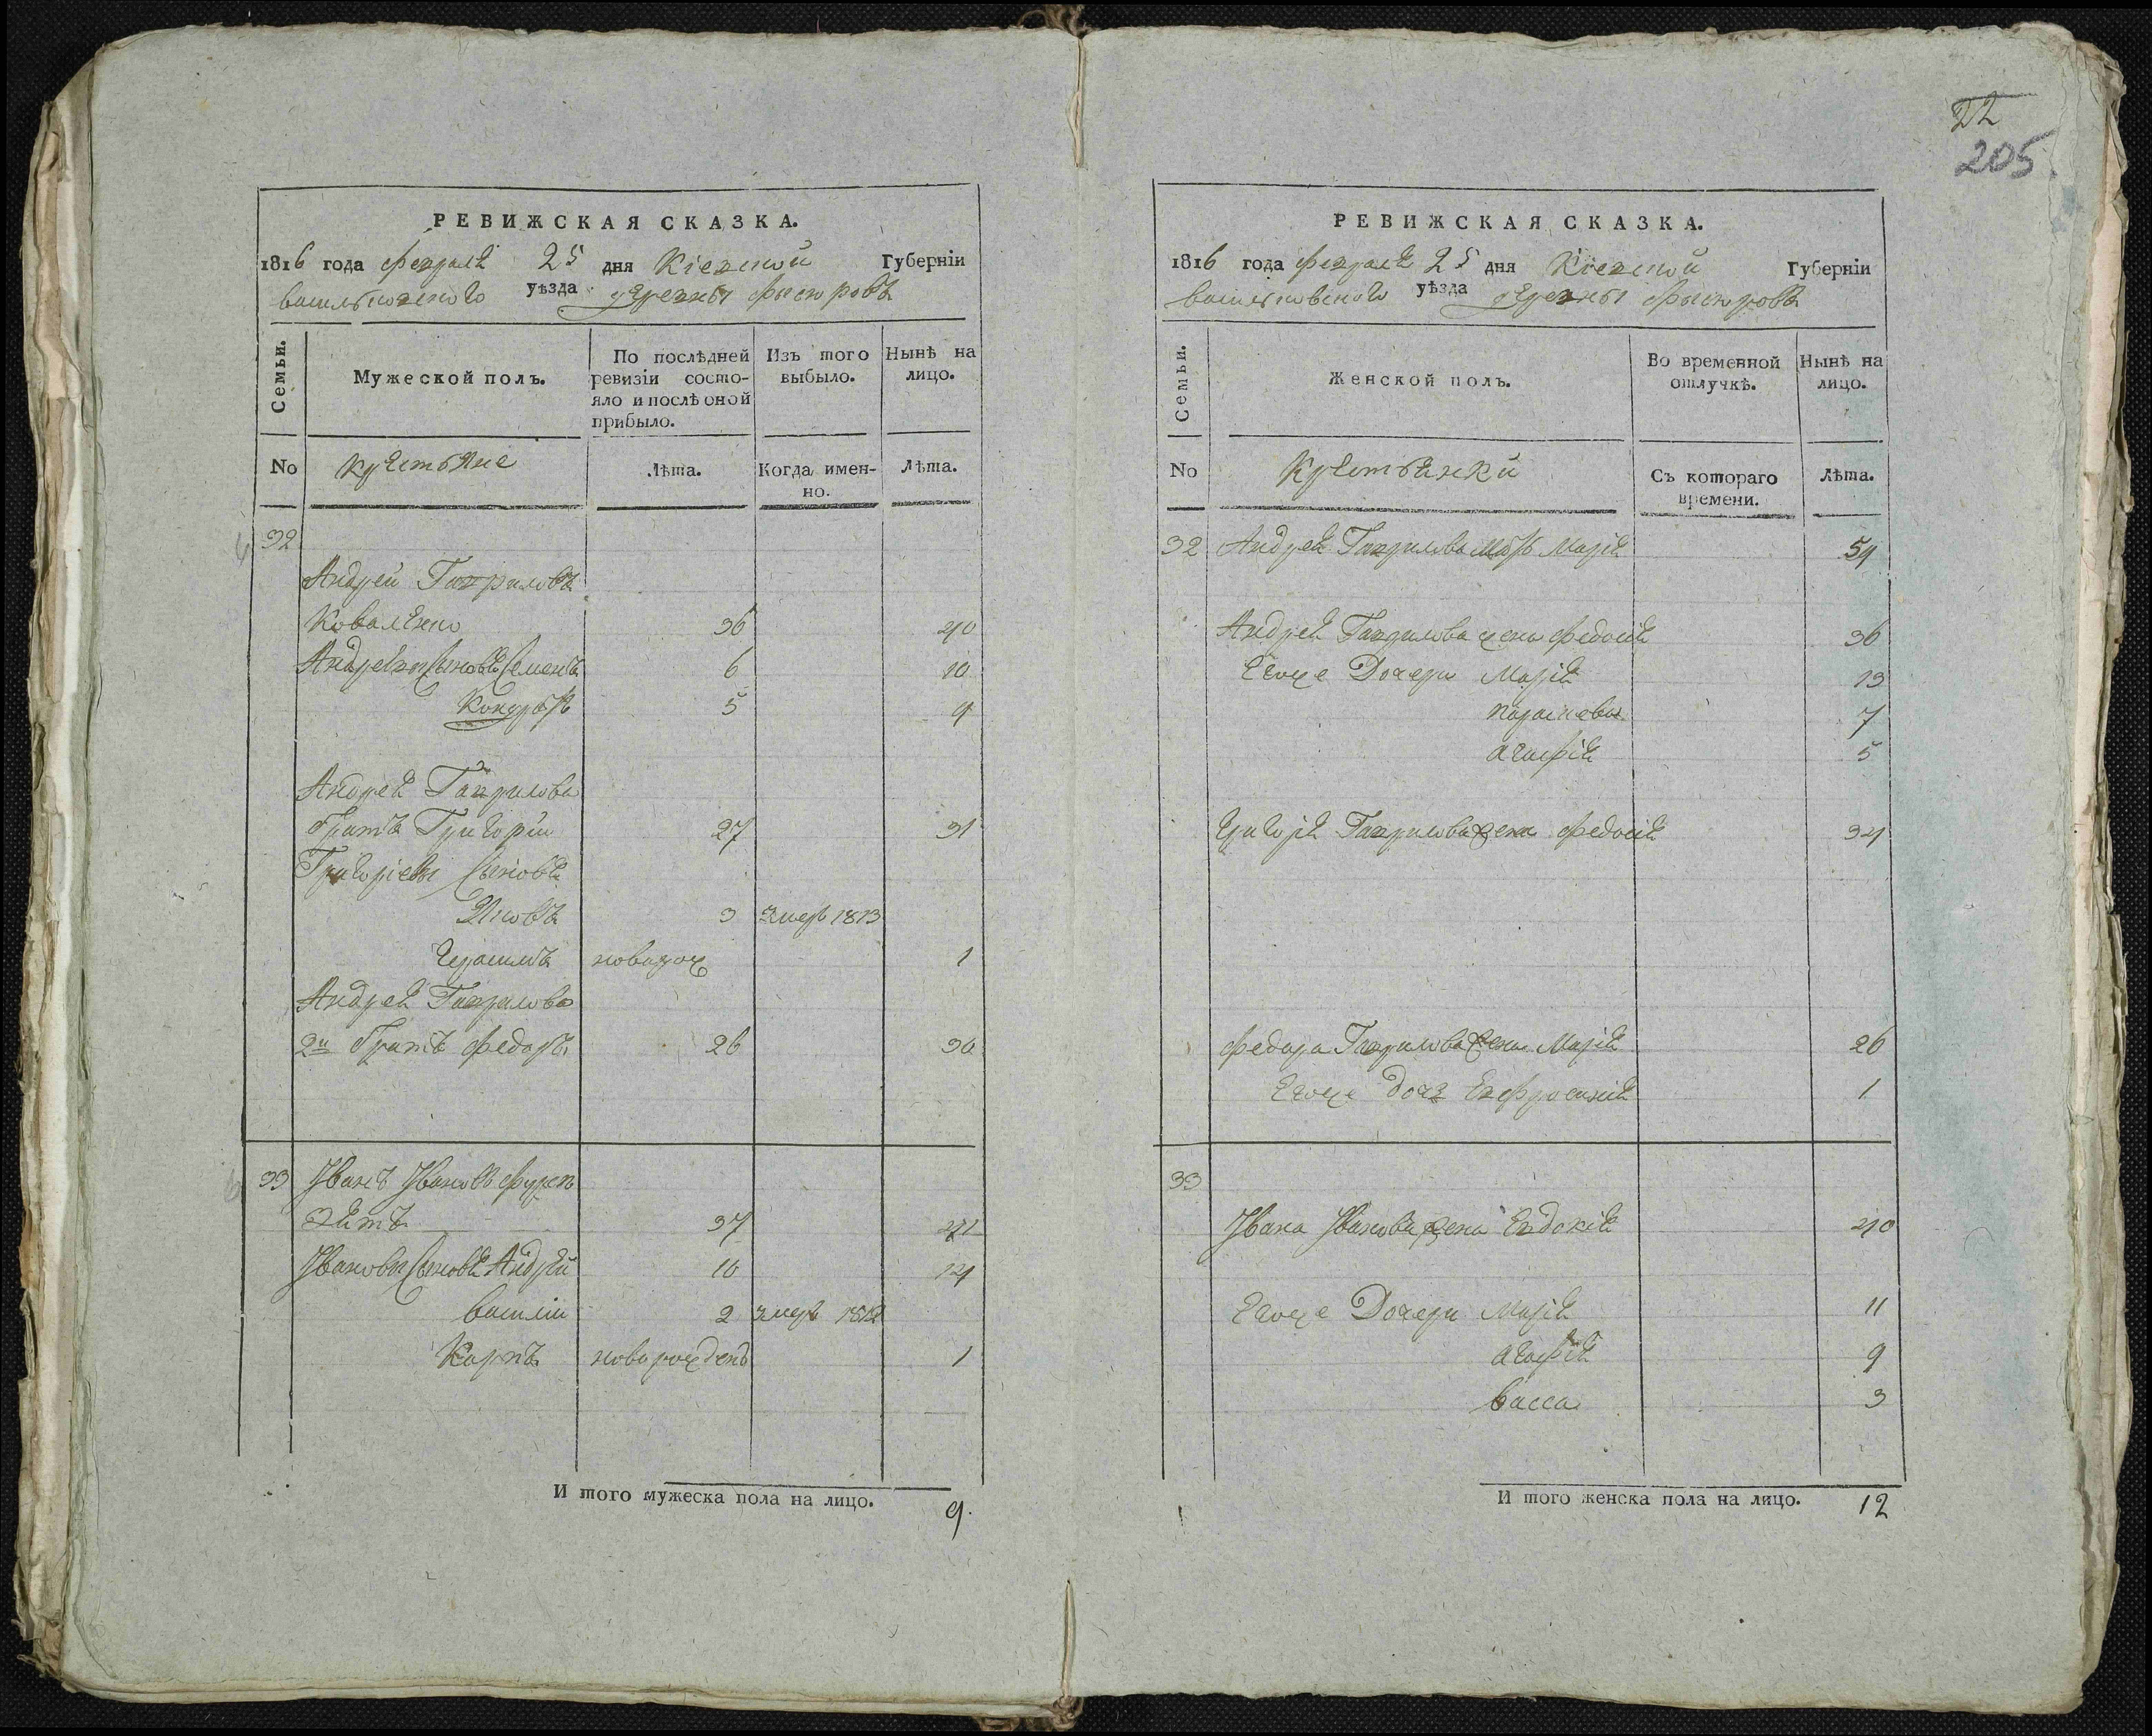 22
205
РЕВИЖСКАЯ СКАЗКА.
1816 года февраля 25 дня Кіевской Губерніи
васильковского уѣзда деревни
Семьи.
Мужеской полъ.
По послѣдней ревизіи состояло и послѣ оной прибыло.
Изъ того выбыло.
Нынѣ на лицо.
No
крестьяне
Лѣта.
Когда именно.
Лѣта.
32
Андрей Гавриловъ
Коваленко 36 40
Андреевы Сыновья Семенъ 6 10
Кондратъ 5 9
Андрея Гаврилова
братъ Григорій 27 31
Григоріевы Сыновья
Яковъ 3 умеръ 1813
Герасимъ новорож 1
Андрея Гаврилова
2й братъ федоръ 26 30
33 Іванъ Івановъ
37 41
Івановы Сыновья Андрей 10 14
василій 2 умеръ 1812
Карпъ новорожденъ 1
И того мужеска пола на лицо. 9.
РЕВИЖСКАЯ СКАЗКА.
1816 года февраля 25 дня Кіевской Губерніи
васильковского уѣзда деревни
Семьи.
Женской полъ.
Во временной отлучкѣ.
Нынѣ на лицо.
No
Крестьянки
Съ котораго времени.
Лѣта.
32 Андрея Гаврилова мать Марія 54
Андрея Гаврилова жена федосія 36
Егоже Дочери Марія 13
параскева 7
агафія 5
григорія Гаврилова жена федосія 34
федора Гаврилова жена Марія 26
Егоже дочь Евфросинія 1
33
Івана Іванова жена Евдокія 40
Егоже Дочери Марія 11
агафія 9
васса 3
И того женска пола на лицо. 12